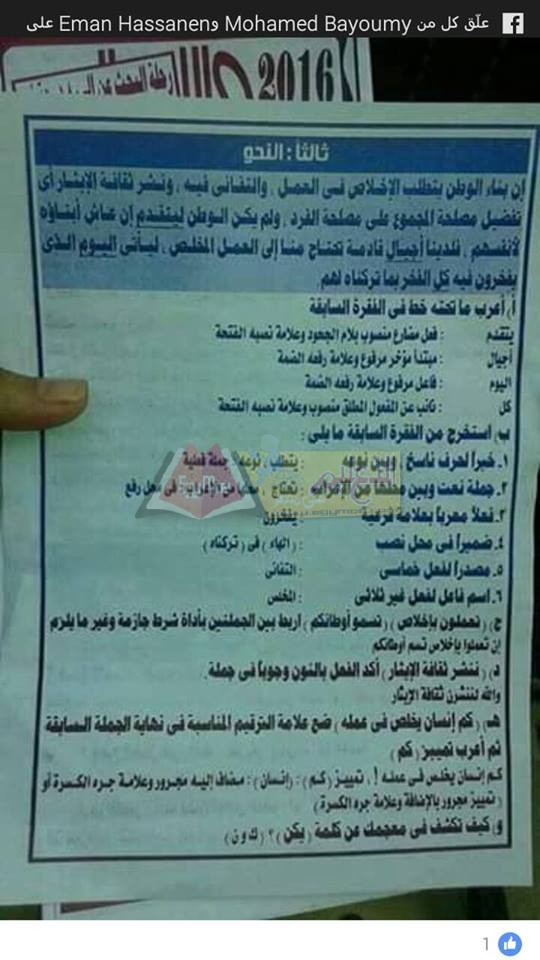 علّق كل من Mohamed Bayoumy و Eman Hassanen على
2016
رحلة البحث عن
ثالثا : النحو
إن بناء الوطن يتطلب الإخلاص فى العمل ، والتفانى فيه ، ونشر ثقافة الإيثار أى
تفضيل مصلحة المجموع على مصلحة الفرد ، ولم يكن الوطن ليتقدم إن عاش أبناؤه
لأنفسهم ، فلدينا أجيال قادمة تحتاج منا إلى العمل المخلص ، ليأتى اليوم الذى
يفخرون فيه كل الفخر بما تركناه لهم
أ. أعرب ما تحته خط فى الفقرة السابقة
يتقدم : فعل مضارع منصوب بلام الجحود وعلامة نصبه الفتحة
أجيال : مبتدأ مؤخر مرفوع وعلامة رفعه الضمة
اليوم : فاعل مرفوع وعلامة رفعه الضمة
كل : نائب عن المفعول المطلق منصوب وعلامة نصبه الفتحة
ب. استخرج من الفقرة السابقة ما يلى :
١. خبراً لحرف ناسخ ، وبين نوعه : يتطلب ، نوعه : جملة فعلية
٢. جملة نعت وبين محلها من الإعراب : تحتاج ، محلها من الإعراب : فى محل رفع
٣. فعلاً معرباً بعلامة فرعية : يفخرون
٤. ضميراً فى محل نصب : (الهاء) فى (تركناه)
٥. مصدراً لفعل خماسى : التفانى
٦. اسم فاعل لفعل غير ثلاثى : المخلص
ج) (تعملون بإخلاص) (تسمو أوطانكم) اربط بين الجملتين بأداة شرط جازمة وغير ما يلزم
إن تعملوا بإخلاص تسم أوطانكم
د. ( ننشر ثقافة الإيثار ) أكد الفعل بالنون وجوباً فى جملة.
والله لننشرن ثقافة الإيثار
هـ. ( كم إنسان يخلص فى عمله ) ضع علامة الترقيم المناسبة فى نهاية الجملة السابقة
ثم أعرب تمييز ( كم )
كم إنسان يخلص فى عمله ! ، تمييز (كم) : (إنسان) : مضاف إليه مجرور وعلامة جره الكسرة أو
(تمييز مجرور بالإضافة وعلامة جره الكسرة)
و. كيف تكشف فى معجمك عن كلمة ( يكن ) ؟ ( ك و ن )
1